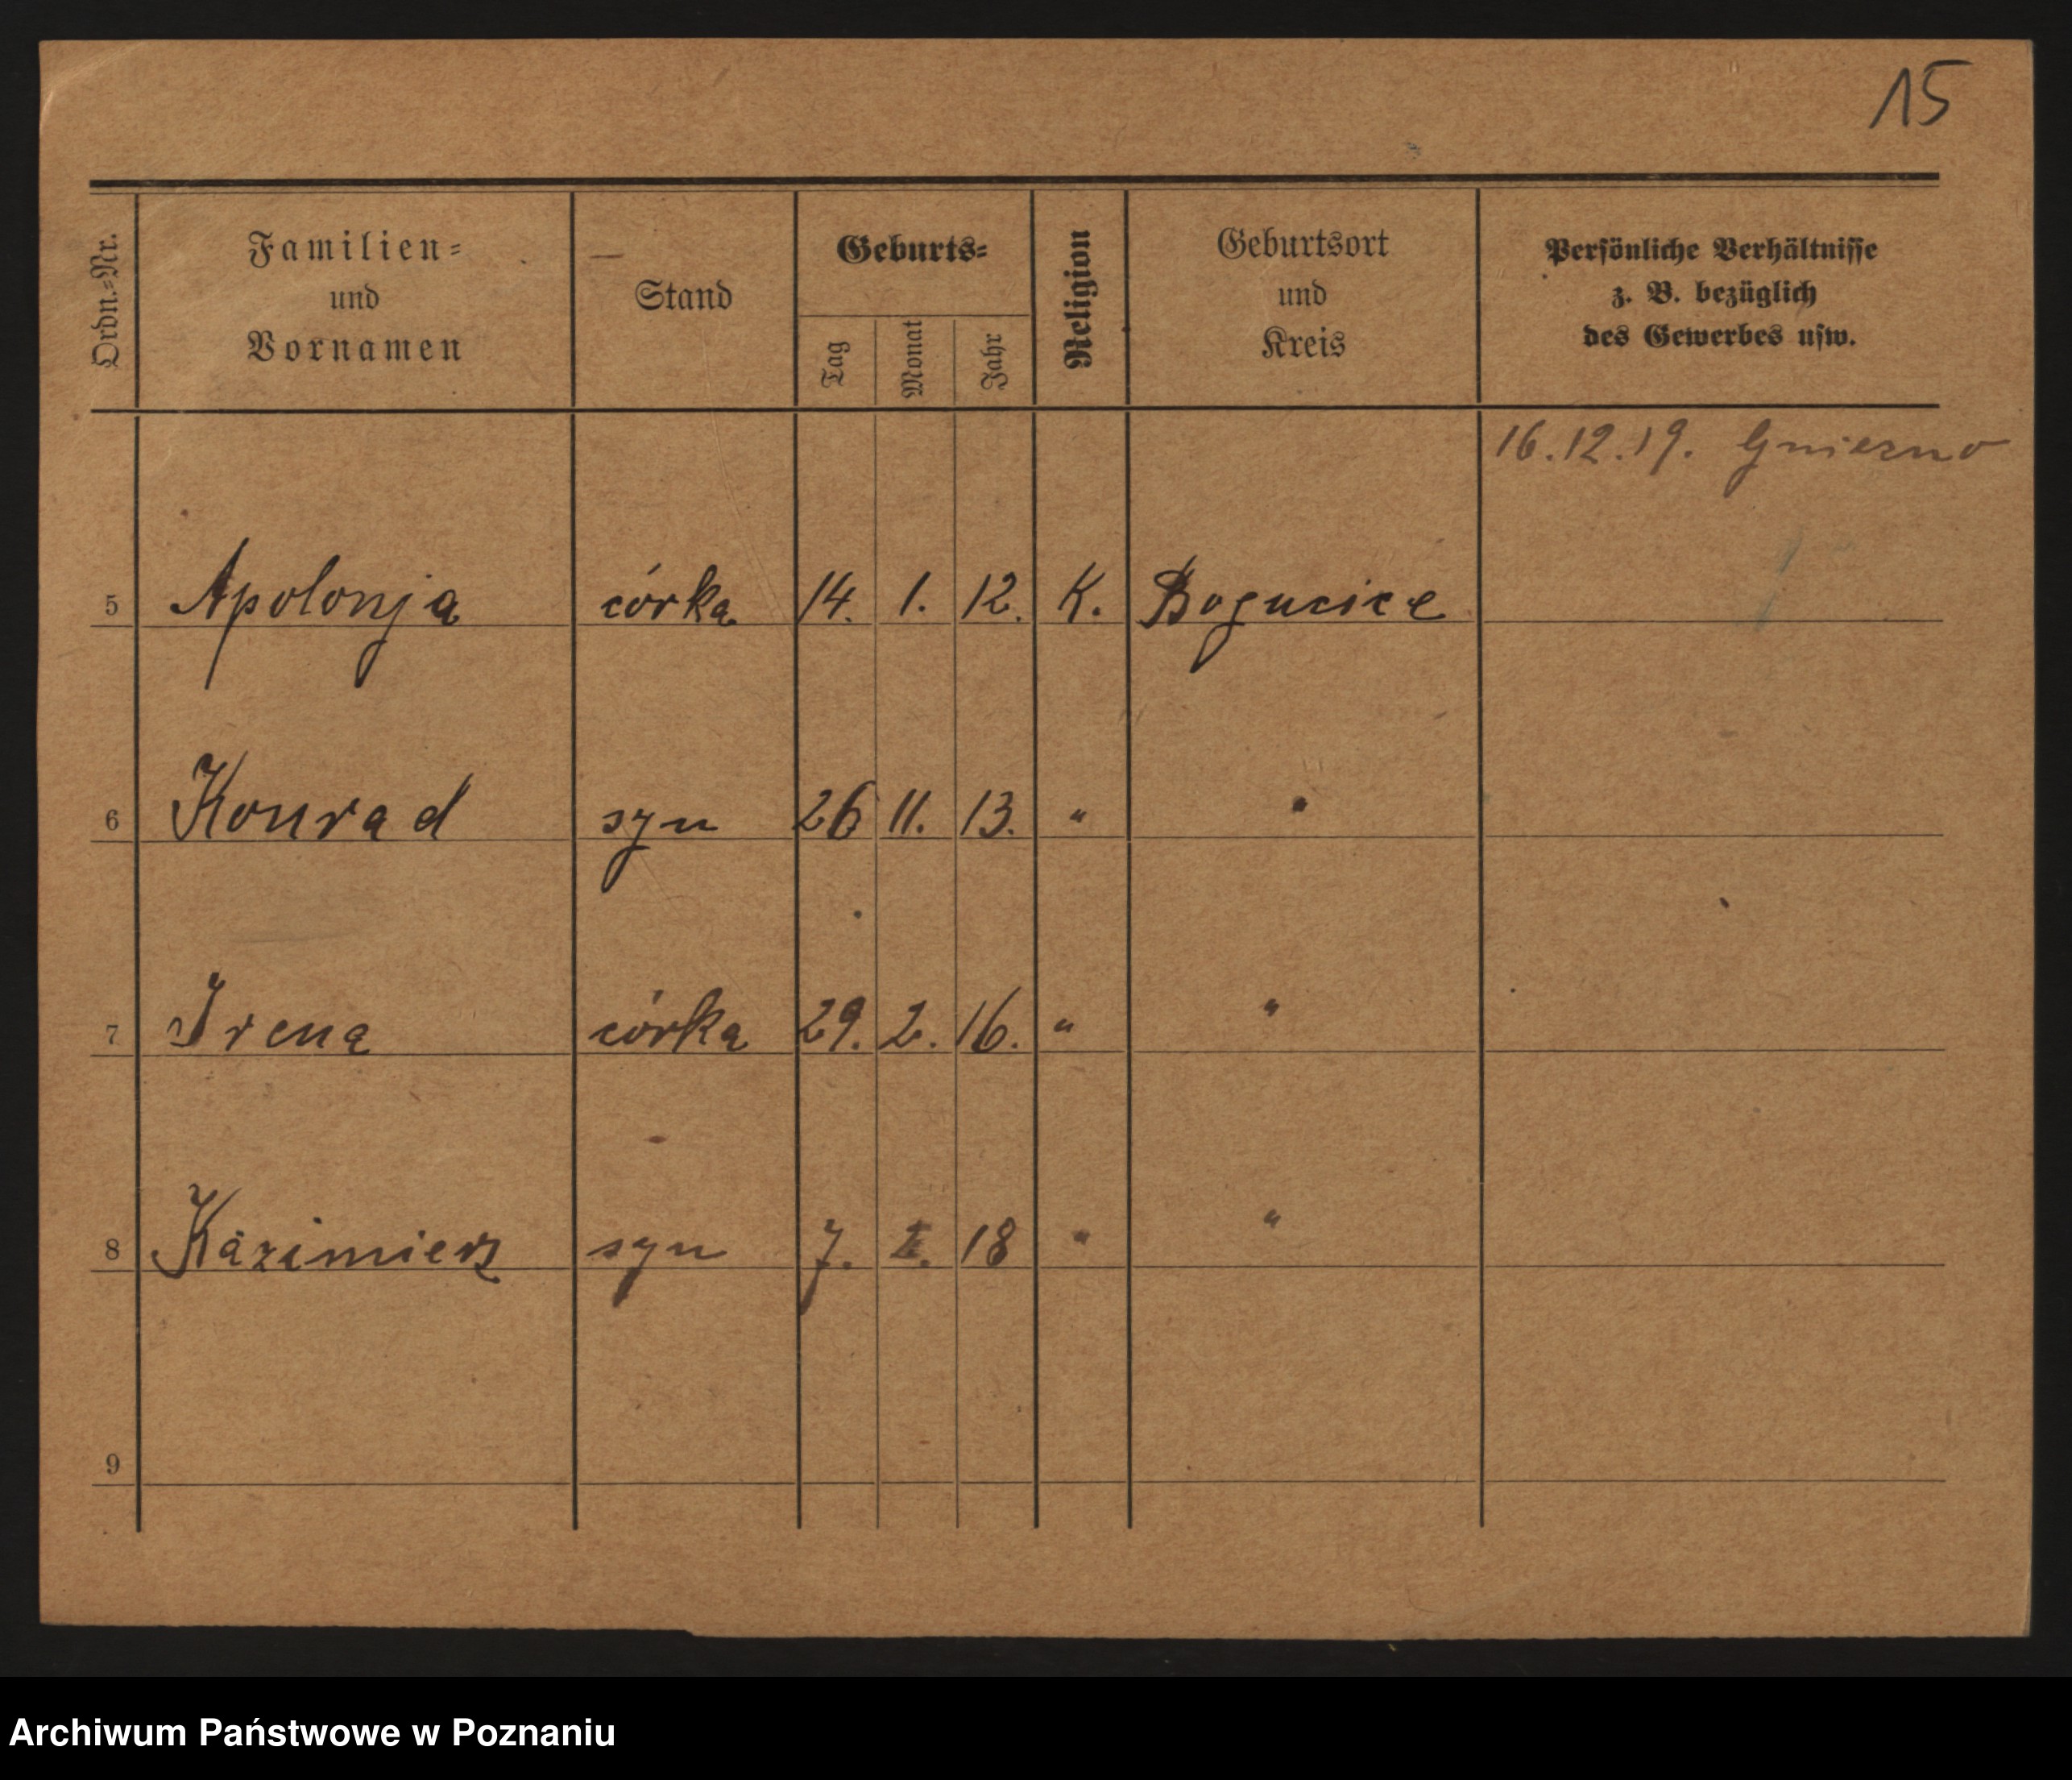 15
Ordn.=Nr.
Familien=
und
Vornamen
Stand
Geburts=
Tag
Monat
Jahr
Religion
Geburtsort
und
Kreis
Persönliche Verhältnisse
z. B. bezüglich
des Gewerbes usw.
16.12.19. Gniezno
5 Apolonja córka 14. 1. 12. K. Bogucice
6 Konrad syn 26 11. 13. " "
7 Irena córka 29. 2. 16. " "
8 Kazimierz syn 7. 18 " "
9
Archiwum Państwowe w Poznaniu